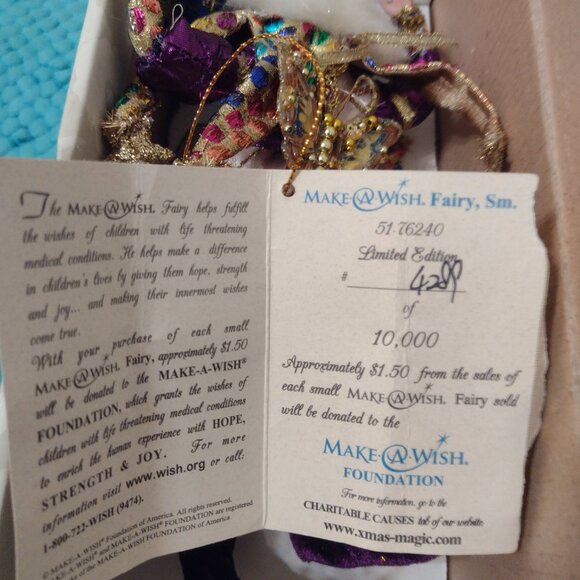 The MAKE-A-WISH. Fairy helps fulfill
the wishes of children with life threatening
medical conditions. He helps make a difference
in children's lives by giving them hope, strength
and joy... and making their innermost wishes
come true.
With your purchase of each small
MAKE-A-WISH. Fairy, approximately $1.50
will be donated to the MAKE-A-WISH®
FOUNDATION, which grants the wishes of
children with life threatening medical conditions
to enrich the human experience with HOPE,
STRENGTH & JOY. For more
information visit www.wish.org or call:
1-800-722-WISH (9474).
© MAKE-A-WISH® Foundation of America. All rights reserved.
MAKE-A-WISH® and MAKE-A-WISH® FOUNDATION are registered
of the MAKE-A-WISH FOUNDATION of America
MAKE-A-WISH. Fairy, Sm.
51-76240
Limited Edition
#
of
10,000
Approximately $1.50 from the sales of
each small MAKE-A-WISH. Fairy sold
will be donated to the
MAKE-A-WISH.
FOUNDATION
For more information, go to the
CHARITABLE CAUSES tab of our website:
www.xmas-magic.com